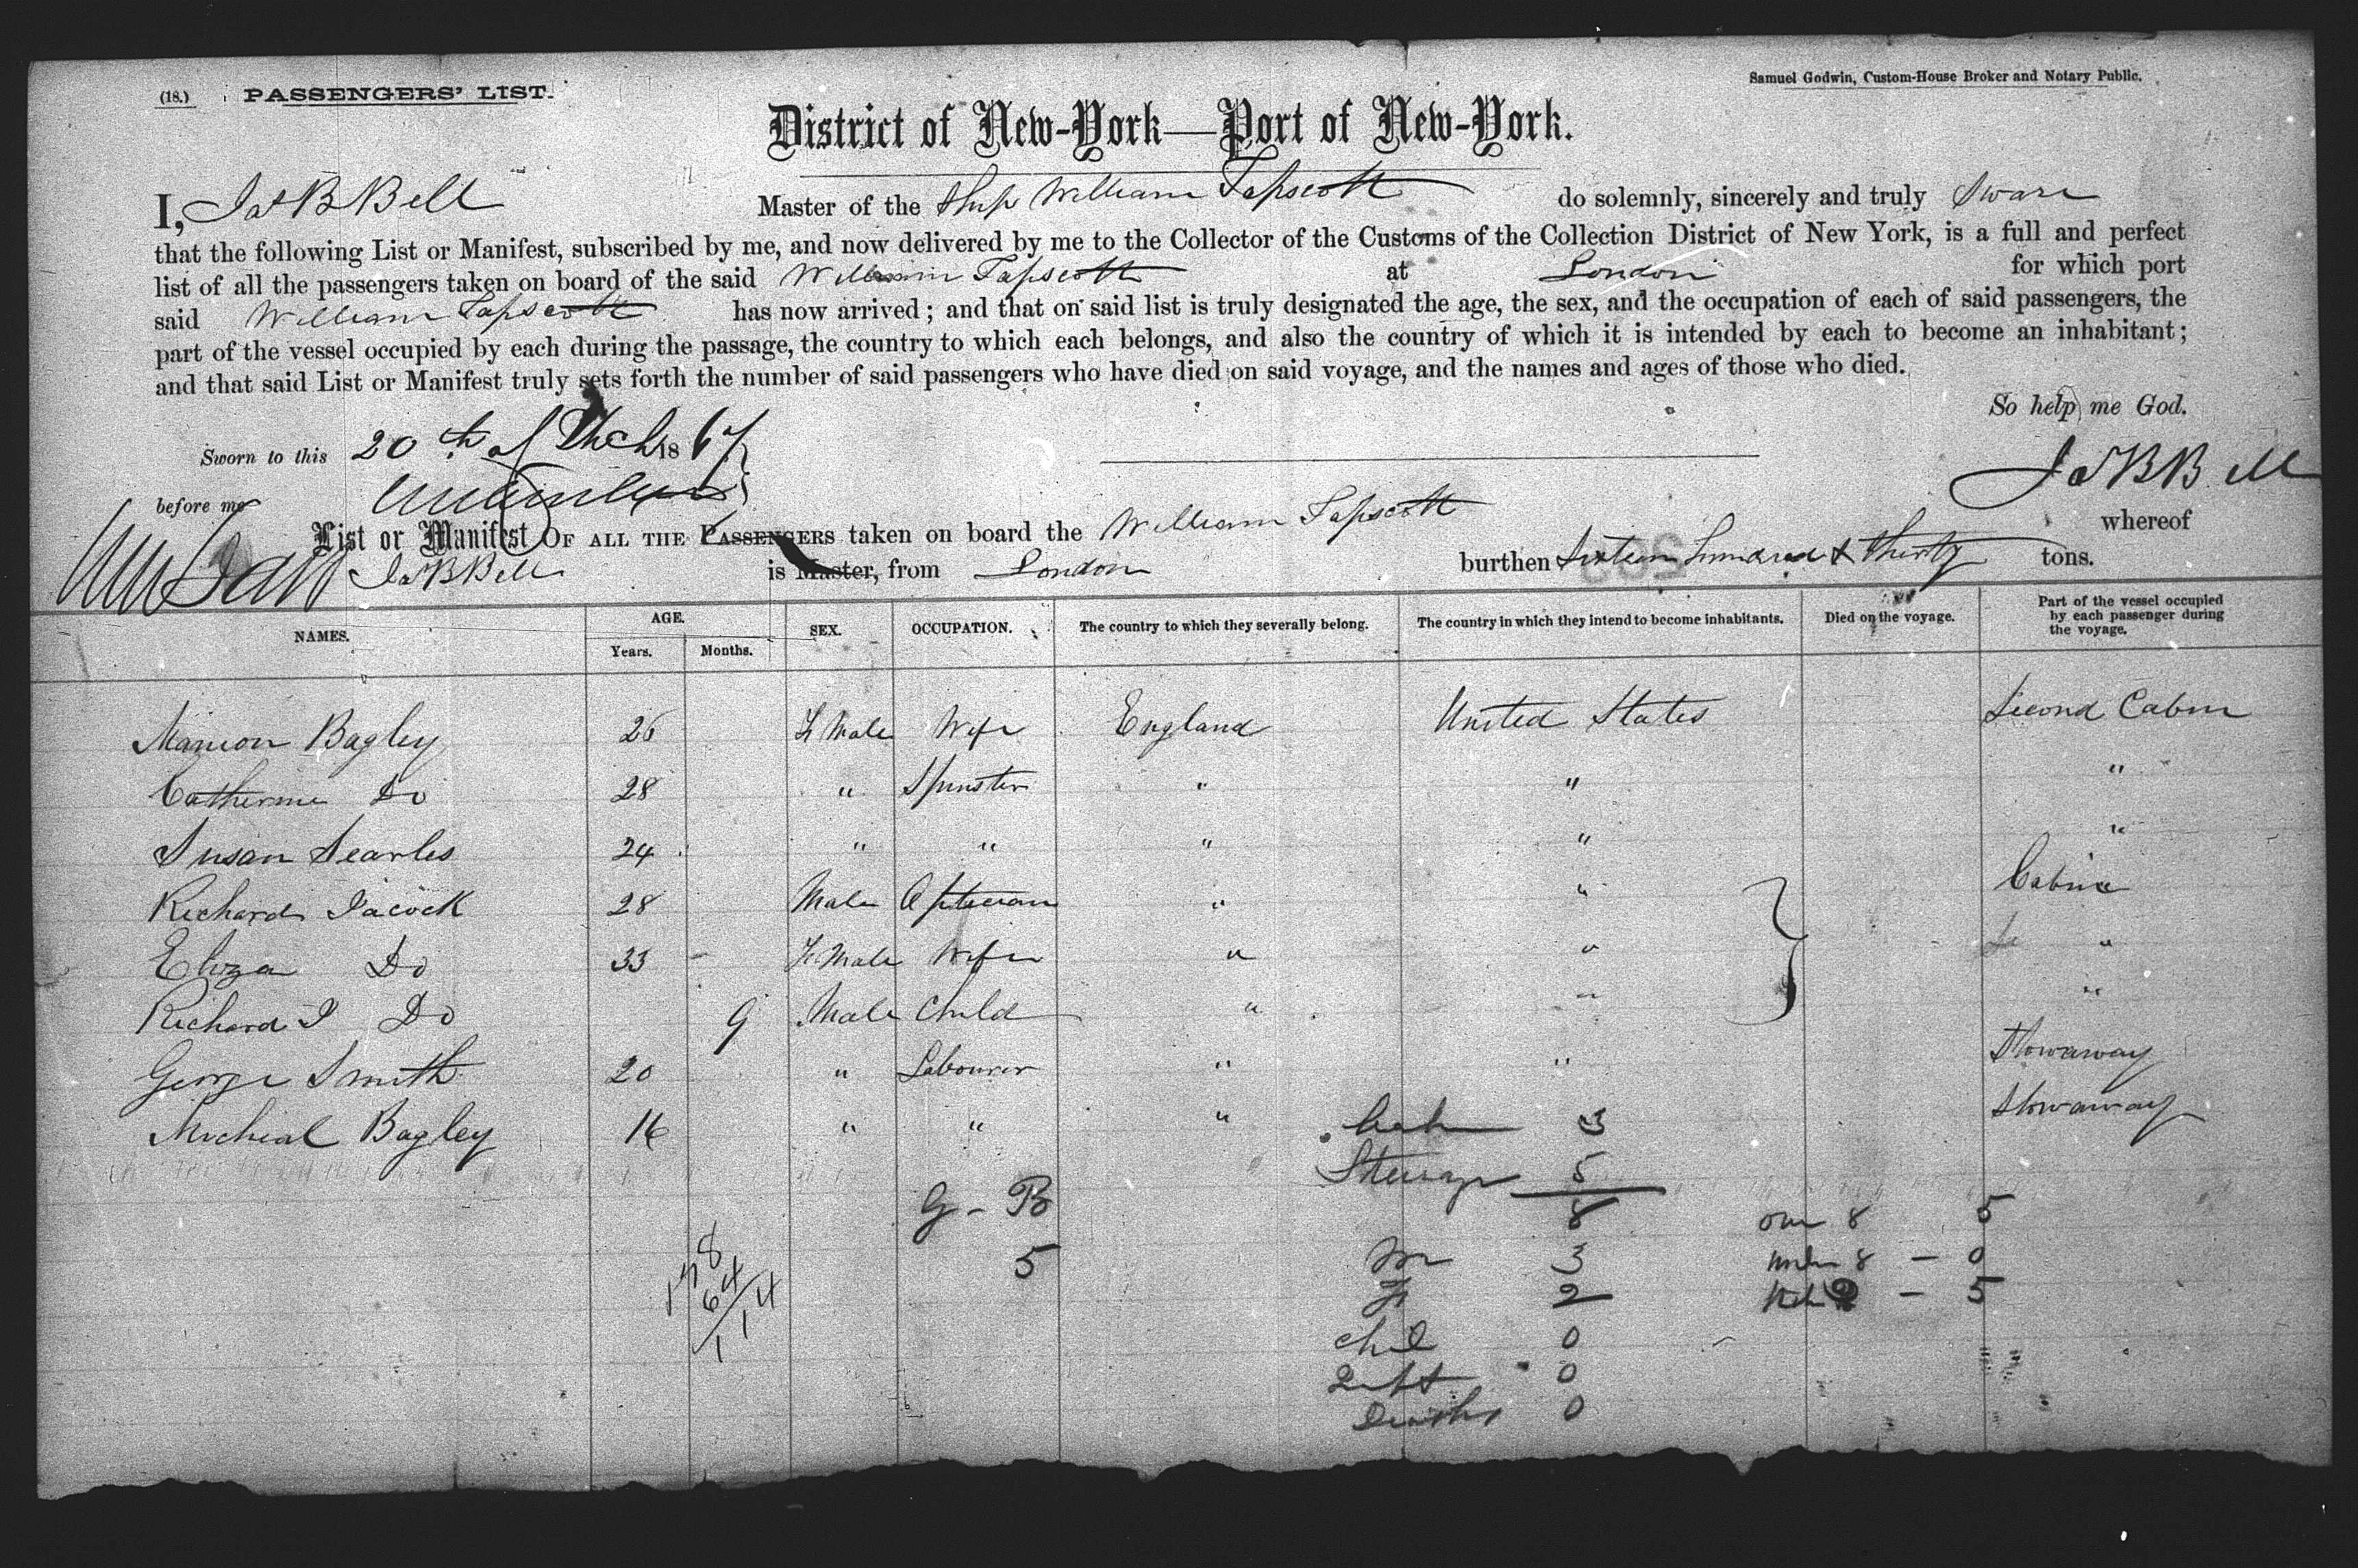 (18.) PASSENGERS' LIST.
Samuel Godwin, Custom-House Broker and Notary Public.
District of New-York—Port of New-York.
I, Jas B Bell Master of the Ship William Tapscott do solemnly, sincerely and truly Swear
that the following List or Manifest, subscribed by me, and now delivered by me to the Collector of the Customs of the Collection District of New York, is a full and perfect
list of all the passengers taken on board of the said William Tapscott at London for which port
said William Tapscott has now arrived; and that on said list is truly designated the age, the sex, and the occupation of each of said passengers, the
part of the vessel occupied by each during the passage, the country to which each belongs, and also the country of which it is intended by each to become an inhabitant;
and that said List or Manifest truly sets forth the number of said passengers who have died on said voyage, and the names and ages of those who died.
So help me God.
Sworn to this 20th of Mch 1867
Jas B Bell
before me
List or Manifest OF ALL THE PASSENGERS taken on board the William Tapscott whereof
Jas B Bell is Master, from London burthen Sixteen Hundred & Thirty tons.
NAMES. AGE. Years. Months. SEX. OCCUPATION. The country to which they severally belong. The country in which they intend to become inhabitants. Died on the voyage. Part of the vessel occupied by each passenger during the voyage.
Bagley 26 F Male Wife England United States Second Cabin
Catherine Do 28 " Spinster " " "
Susan Searles 24 " " " " "
Richard Jacock 28 Male Optician " " Cabin
Eliza Do 33 - F Male Wife " " "
Richard J Do 9 Male Child " " "
George Smith 20 " Labourer " " Stowaway
Micheal Bagley 16 " " " Stowaway
Cabin 3
Steerage 5
8
G - B
5
M 3
F 2
chil 0
Inft 0
Deaths 0
over 8 5
under 8 - 0
- 5
178
64
114